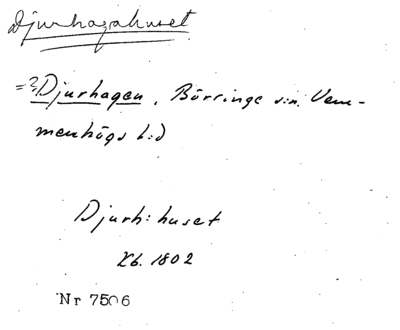 Djurhagahuset
=? Djurhagen, Börringe sn. Vem-
menhögs hd
Djurh:huset
Kb. 1802
Nr 7506